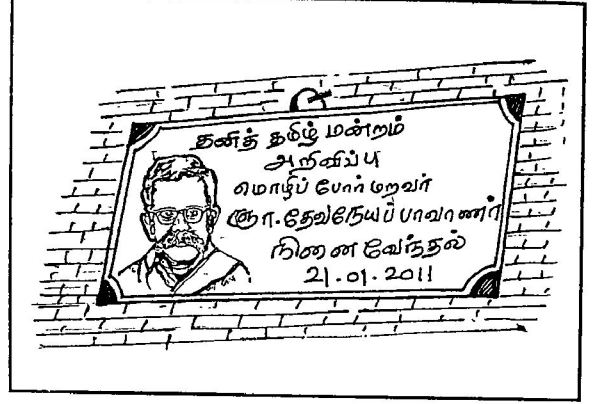 தனித் தமிழ் மன்றம்
அறிவிப்பு
மொழிப் போர் மறவர்
ஞா. தேவநேயப் பாவாணர்
நினைவேந்தல்
21.01.2011